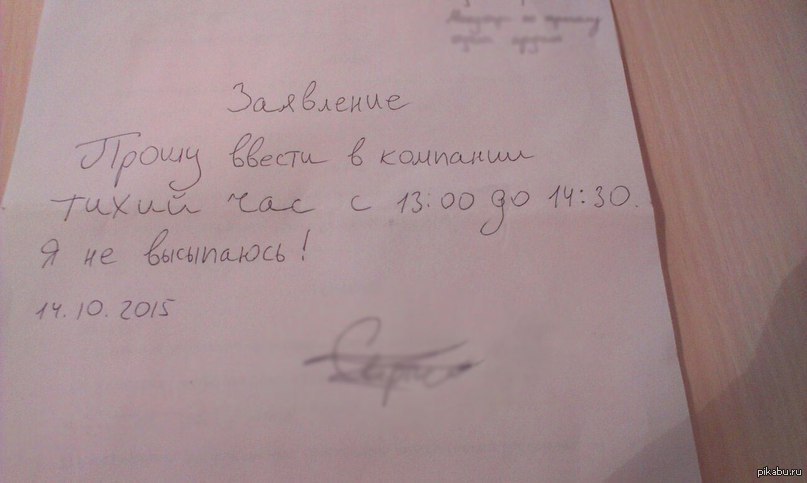 Заявление
Прошу ввести в компании
тихий час с 13:00 до 14:30.
Я не высыпаюсь!
14.10.2015
pikabu.ru